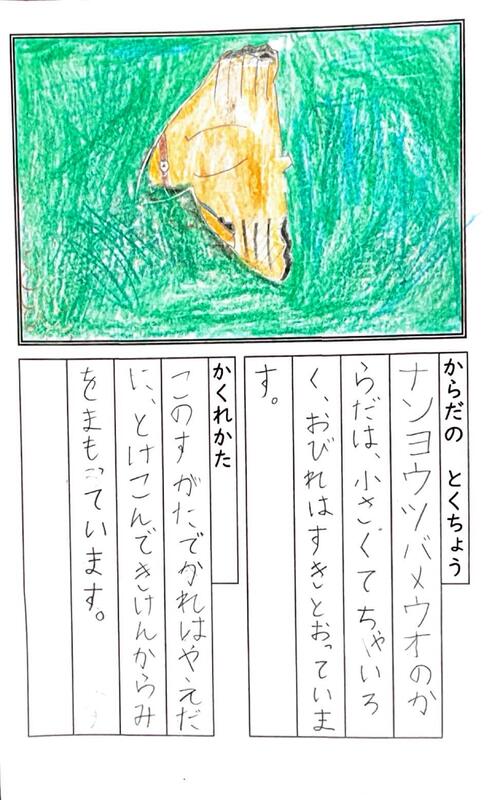 からだの　とくちょう
ナンヨウツバメウオのか
らだは、小さくてちゃいろ
く、おびれはすきとおっていま
す。
かくれかた
このすがたでかれはやえだ
に、とけこんできけんからみ
をまもっています。